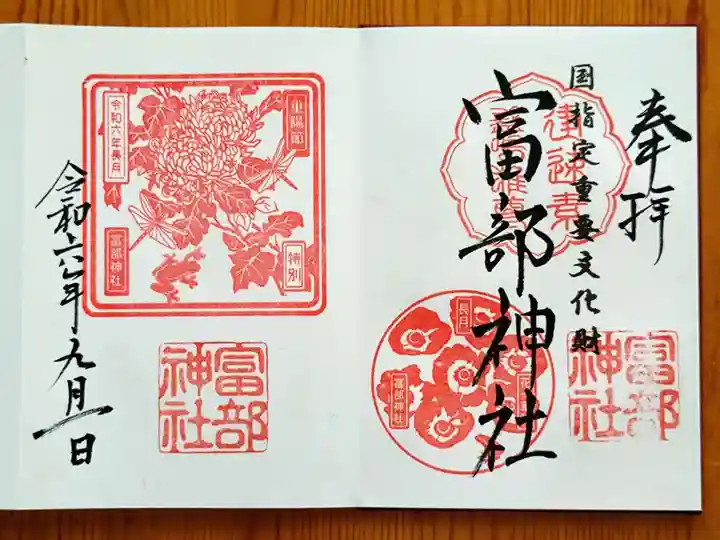 奉拝
国指定重要文化財
富部神社
建速素
長月
富部神社
富部神社
重陽家
令和六年長月
特別
富部神社
富部神社
令和六年九月一日